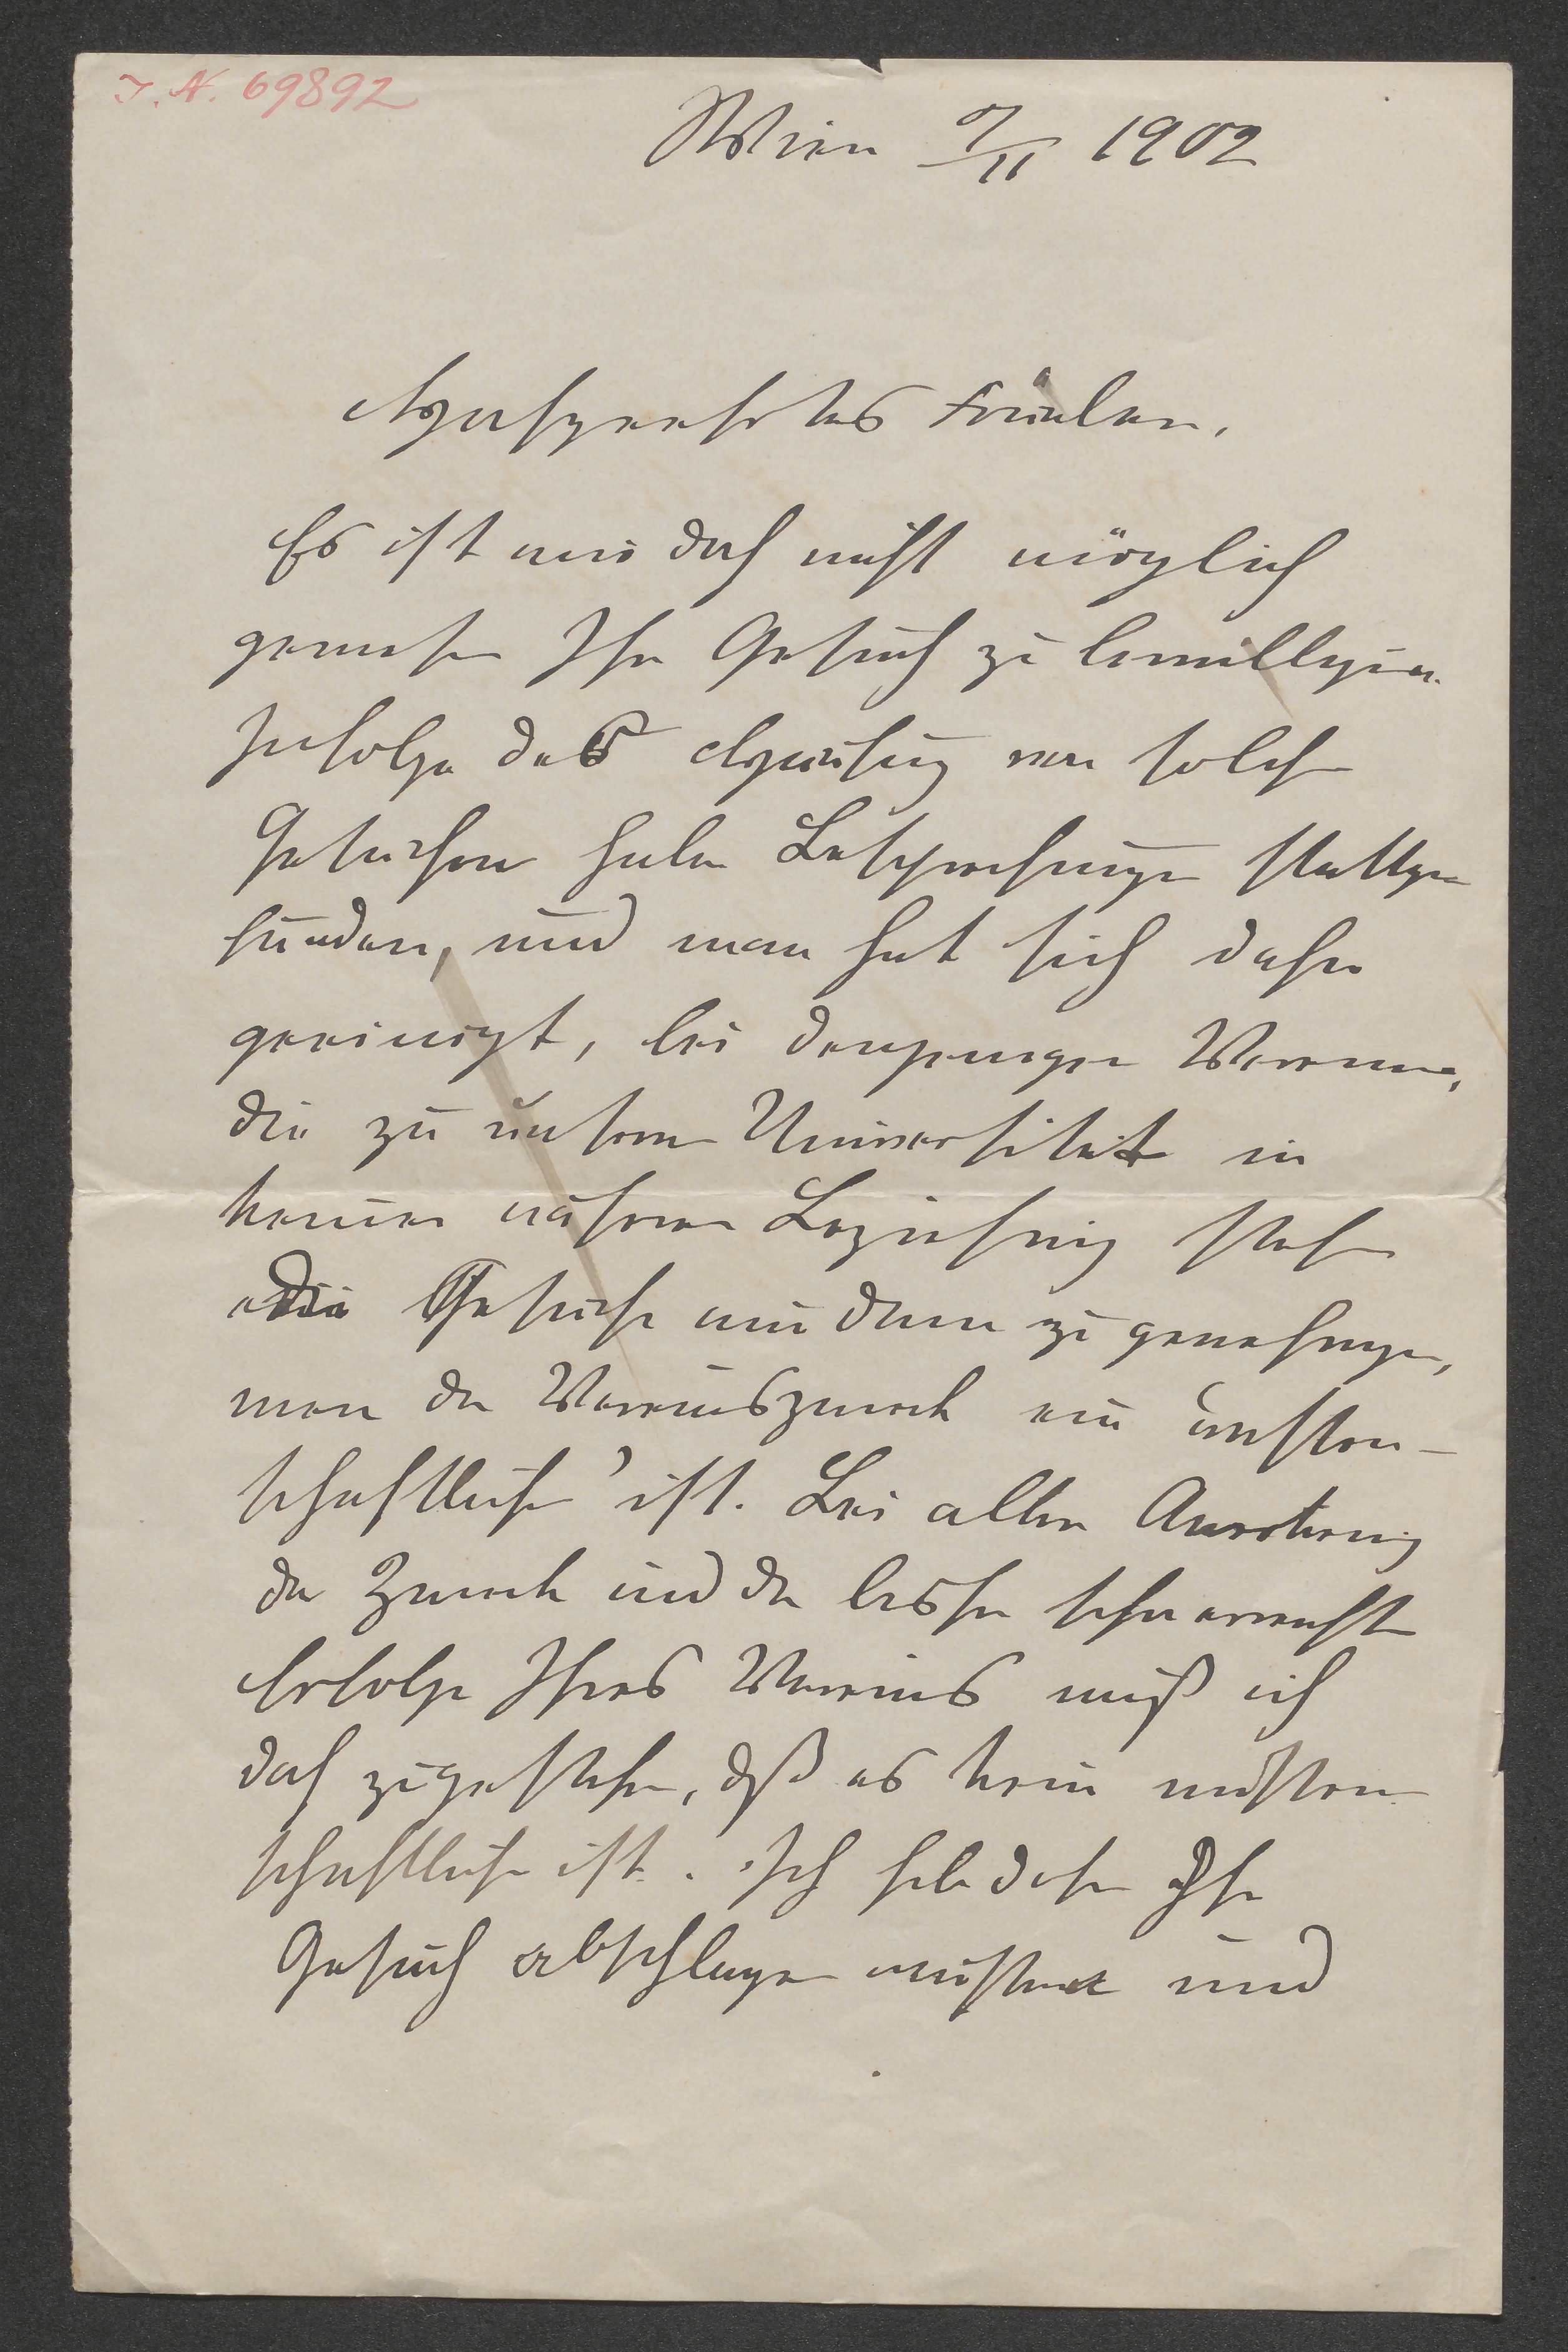 I. N. 69892
Wien 7/11 1902
Hochgeehrtes Fräulein.
Es ist mir doch nicht möglich
gewesen Ihr Gesuch zu bewilligen.
Infolge der Häufung von solchen
Gesuchen haben Besprechungen stattge-
funden, und man hat sich dahin
geeinigt, bei denjenigen Vereinen,
die zu unserer Universität in
keiner näheren Beziehung stehen
die Gesuche nur dann zu genehmigen,
wenn der Vereinszweck ein wissen-
schaftlicher ist. Bei aller Anerkennung
der Zwecke und der bisher schon erreichten
Erfolge Ihres Vereins muß ich
doch zugestehen, daß es kein wissen-
schaftlicher ist. Ich habe daher Ihr
Gesuch abschlagen müssen und